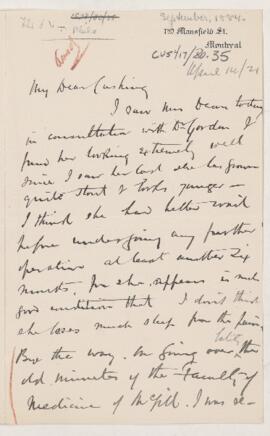 September, 1884.
780 Mansfield St.
Montreal
CUS417/ .35
April 14/21
My Dear Cushing
I saw Mrs Dean today
in consultation with Dr Gordon I
found her looking extremely well
since I saw her last she has grown
quite stout & looks younger –
I think she had better wait
before undergoing any further
operation at least another six
months. For she appears in such
good condition that I don't think
she loses much sleep from the pain,
Bye the way. On going over, the
old minutes of the Faculty of
Medicine of McGill. I was re-